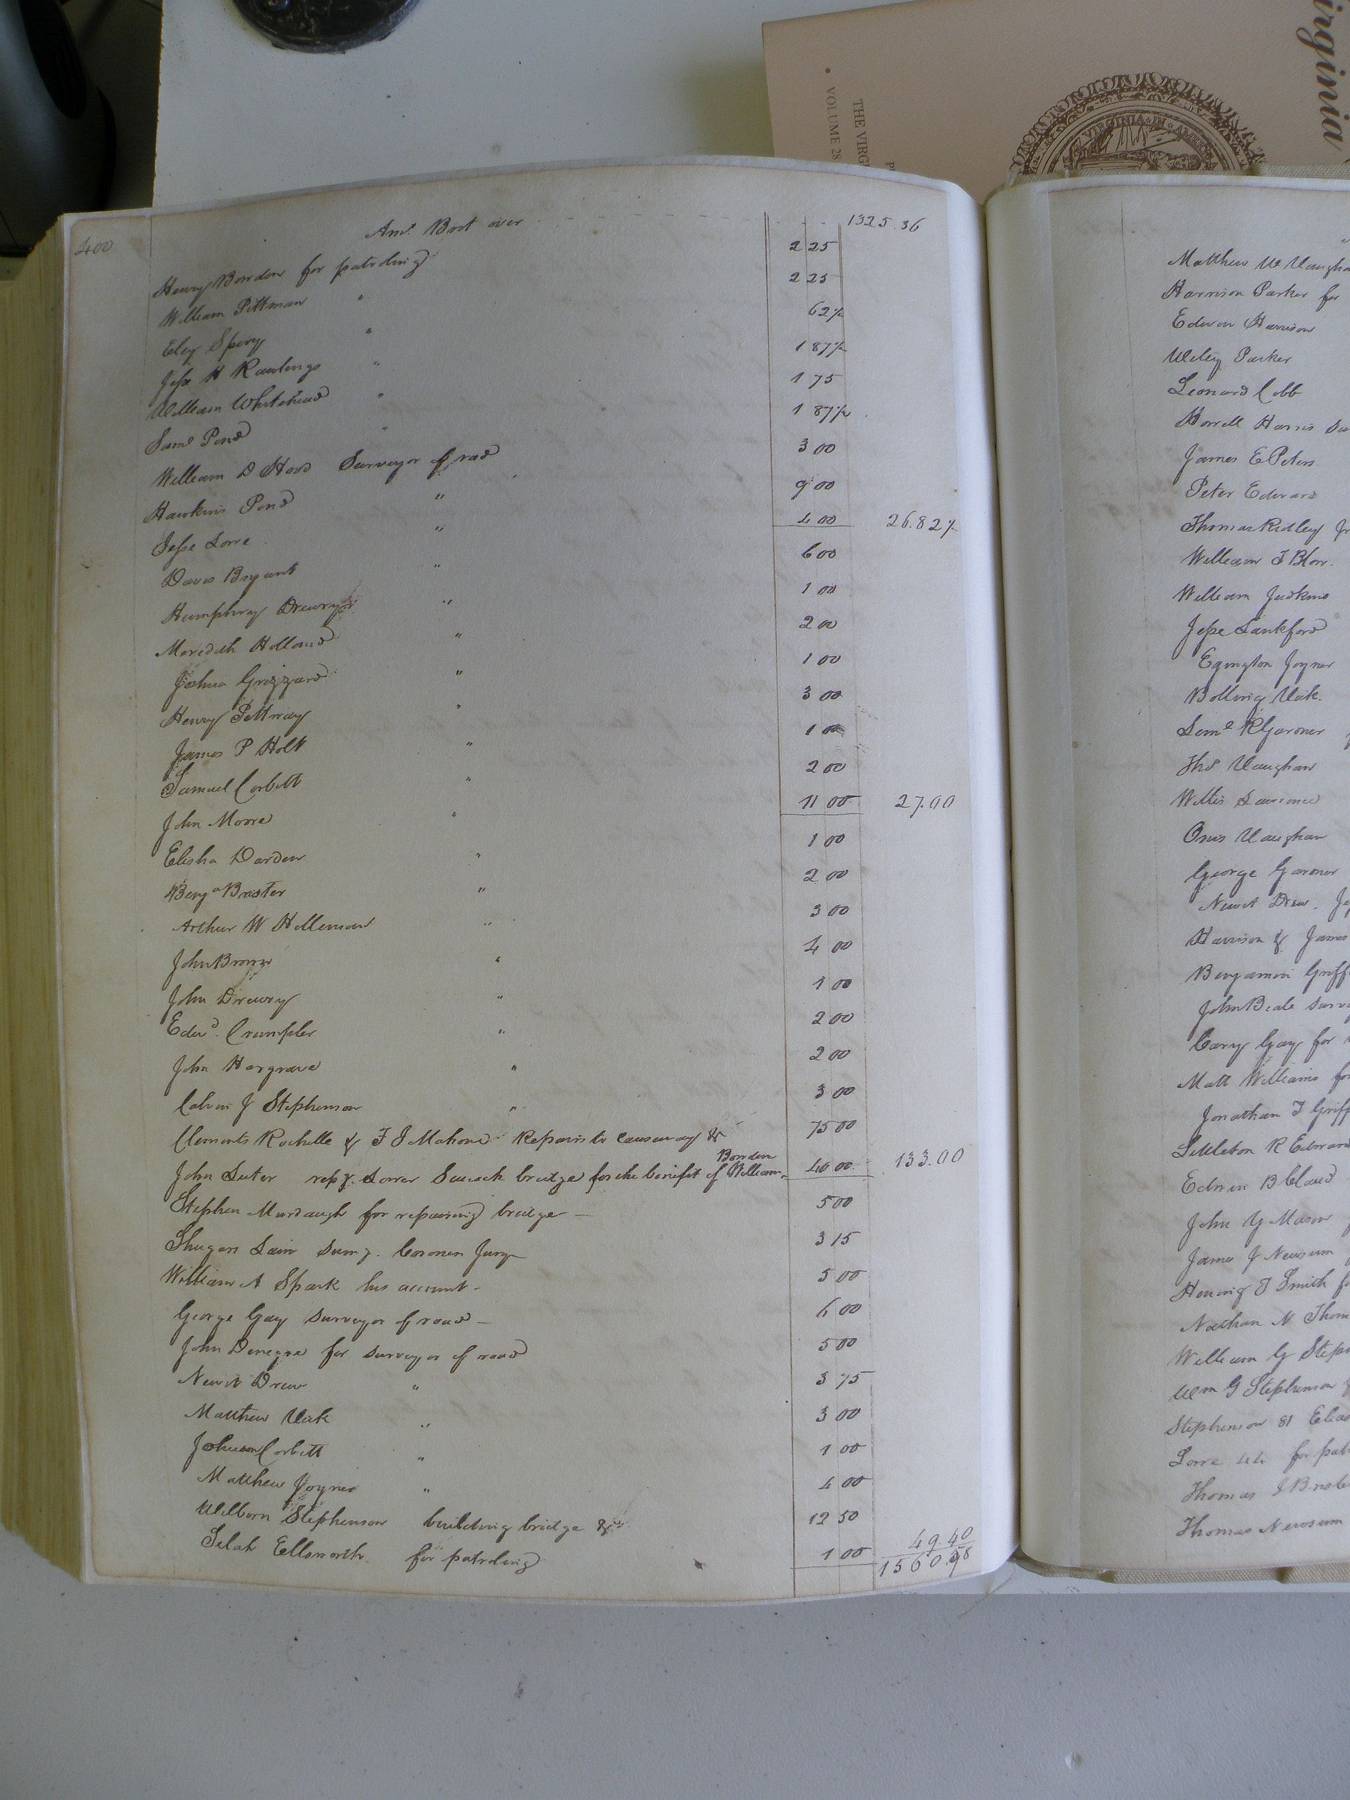 irginia
THE VIRG
VOLUME 28
VIRGINIA
400
Amt. Brot over 1325.36
Henry Bowden for patroling 2 25
William Pittman " 2 25
Eley Spivy " 62½
Jesse H Rawlings " 1 87½
William Whitehead " 1 75
Saml Pond " 1 87½
William D Hood Surveyor of road 3 00
Hawkins Pond " 9 00
Jesse Lorre " 4 00 26.82½
Davis Bryant " 6 00
Humphrey Drewry " 1 00
Meredith Holland " 2 00
Joshua Grizzard " 1 00
Henry Pettway " 3 00
James P Holt " 1 00
Samuel Corbitt " 2 00
John Moore " 11 00 27.00
Elisha Darden " 1 00
Benja Braster " 2 00
Arthur W Holleman " 3 00
John Brown " 4 00
John Drewry " 1 00
Edwd. Crumpler " 2 00
John Hargrave " 2 00
Calvin J Stephenson " 3 00
Clements Rochelle & T J Mahone Repairs to causeway &c 75 00
John Luter repg. Lower Seacock bridge for the benefit of William Bowden 40 00 133.00
Stephen Murdaugh for repairing bridge — 5 00
Shugars Lain sumg. Coroners Jury 3 15
William A Spark his account - 5 00
George Gay Surveyor of road — 6 00
John Denegre for surveyor of road 5 00
Newit Drew " 3 75
Matthew Vick " 3 00
Johnson Corbitt " 1 00
Matthew Joyner " 4 00
Wilborn Stephenson building bridge &c 12 50
Selah Ellsworth for patroling 1 00 49.40
1560.98
Matthew W Vaugha
Harrison Parker for
Edwin Harrison
Wiley Parker
Leonard Cobb
Horrell Harris Su
James E Peters
Peter Edwards
Thomas Ridley Jr
William T Blow.
William Judkins
Jesse Lankford
Eqington Joyner
Bolling Vick.
Saml K Garner
Thos Vaughan
Willis Lawrence
Orris Vaughan
George Garner
Newit Drew. Ja
Harrison & James
Benjamin Griff
John Beale Surv
Cary Gay for
Matt Williams for
Jonathan T Griff
Littleton R Edward
Edwin B Claud
John Y Mason
James J Newsum
Hening T Smith f
Nathan N Thom
William G Steph
Wm G Stephenson
Stephenson 81 Elias
Lorre 44 for pat
Thomas J Bris
Thomas Newsum